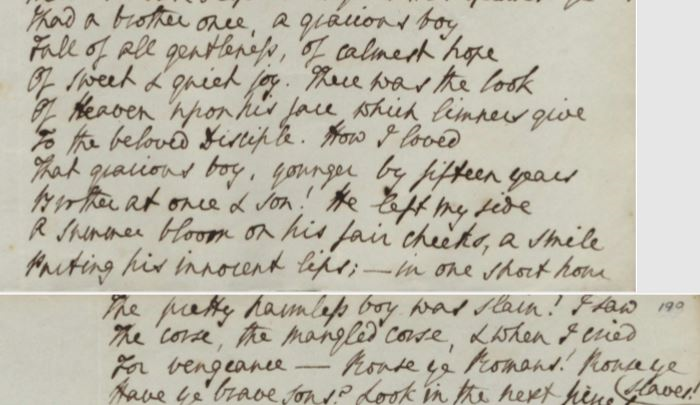 I had a brother once, a gracious boy
Full of all gentleness, of calmest hope
Of sweet & quiet joy. There was the look
Of Heaven upon his face which limners give
To the beloved Disciple. How I loved
That gracious boy, younger by fifteen years
Brother at once & son! He left my side
A summer bloom on his fair cheeks, a smile
Parting his innocent lips; — in one short hour
The pretty harmless boy was slain! I saw
190
The corse, the mangled corse, & when I cried
For vengeance — Rouse ye Romans! Rouse ye
slaves!
Have ye brave sons? Look in the next